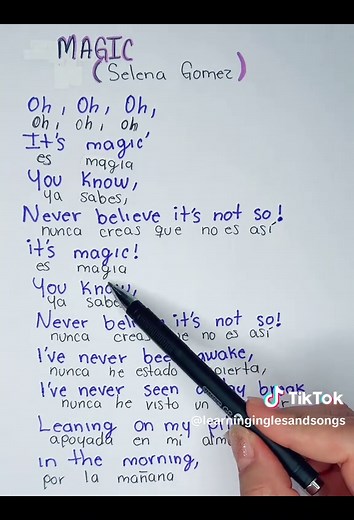 MAGIC
(Selena Gomez)
Oh, Oh, Oh,
Oh, oh, oh
It's magic'
es magia
You Know,
ya sabes,
Never believe it's not so!
nunca creas que no es así
it's magic!
es magia
You Know,
ya sabe
Never beli it's not so!
nunca creas e no es así
I've never be awake,
nunca he estado pierta,
I've never seen a ay break
nunca he visto un r
Leaning on my pi
apoyada en mi alm
in the morning,
por la mañana
TikTok
@learninginglesandsongs